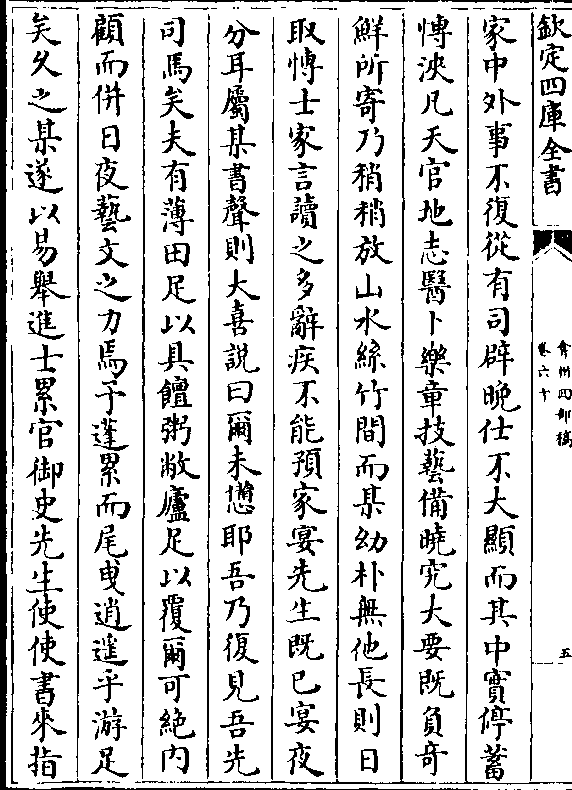 欽定四庫全書
弇州四部稿
卷六十
五
家中外事不復從有司辟晚仕不大顯而其中實停蓄
愽泱凡天官地志醫卜樂章技藝備曉究大要既負竒
鮮所寄乃稍稍放山水絲竹間而某幼朴無他長則日
取愽士家言讀之多辭疾不能預家宴先生既已宴夜
分耳屬某書聲則大喜說曰爾未憊耶吾乃復見吾先
司馬矣夫有薄田足以具饘粥敝廬足以覆爾可絶内
顧而併日夜藝文之力焉予蓬累而尾曵逍遥乎游足
矣乆之某遂以易舉進士累官御史先生使使書來指